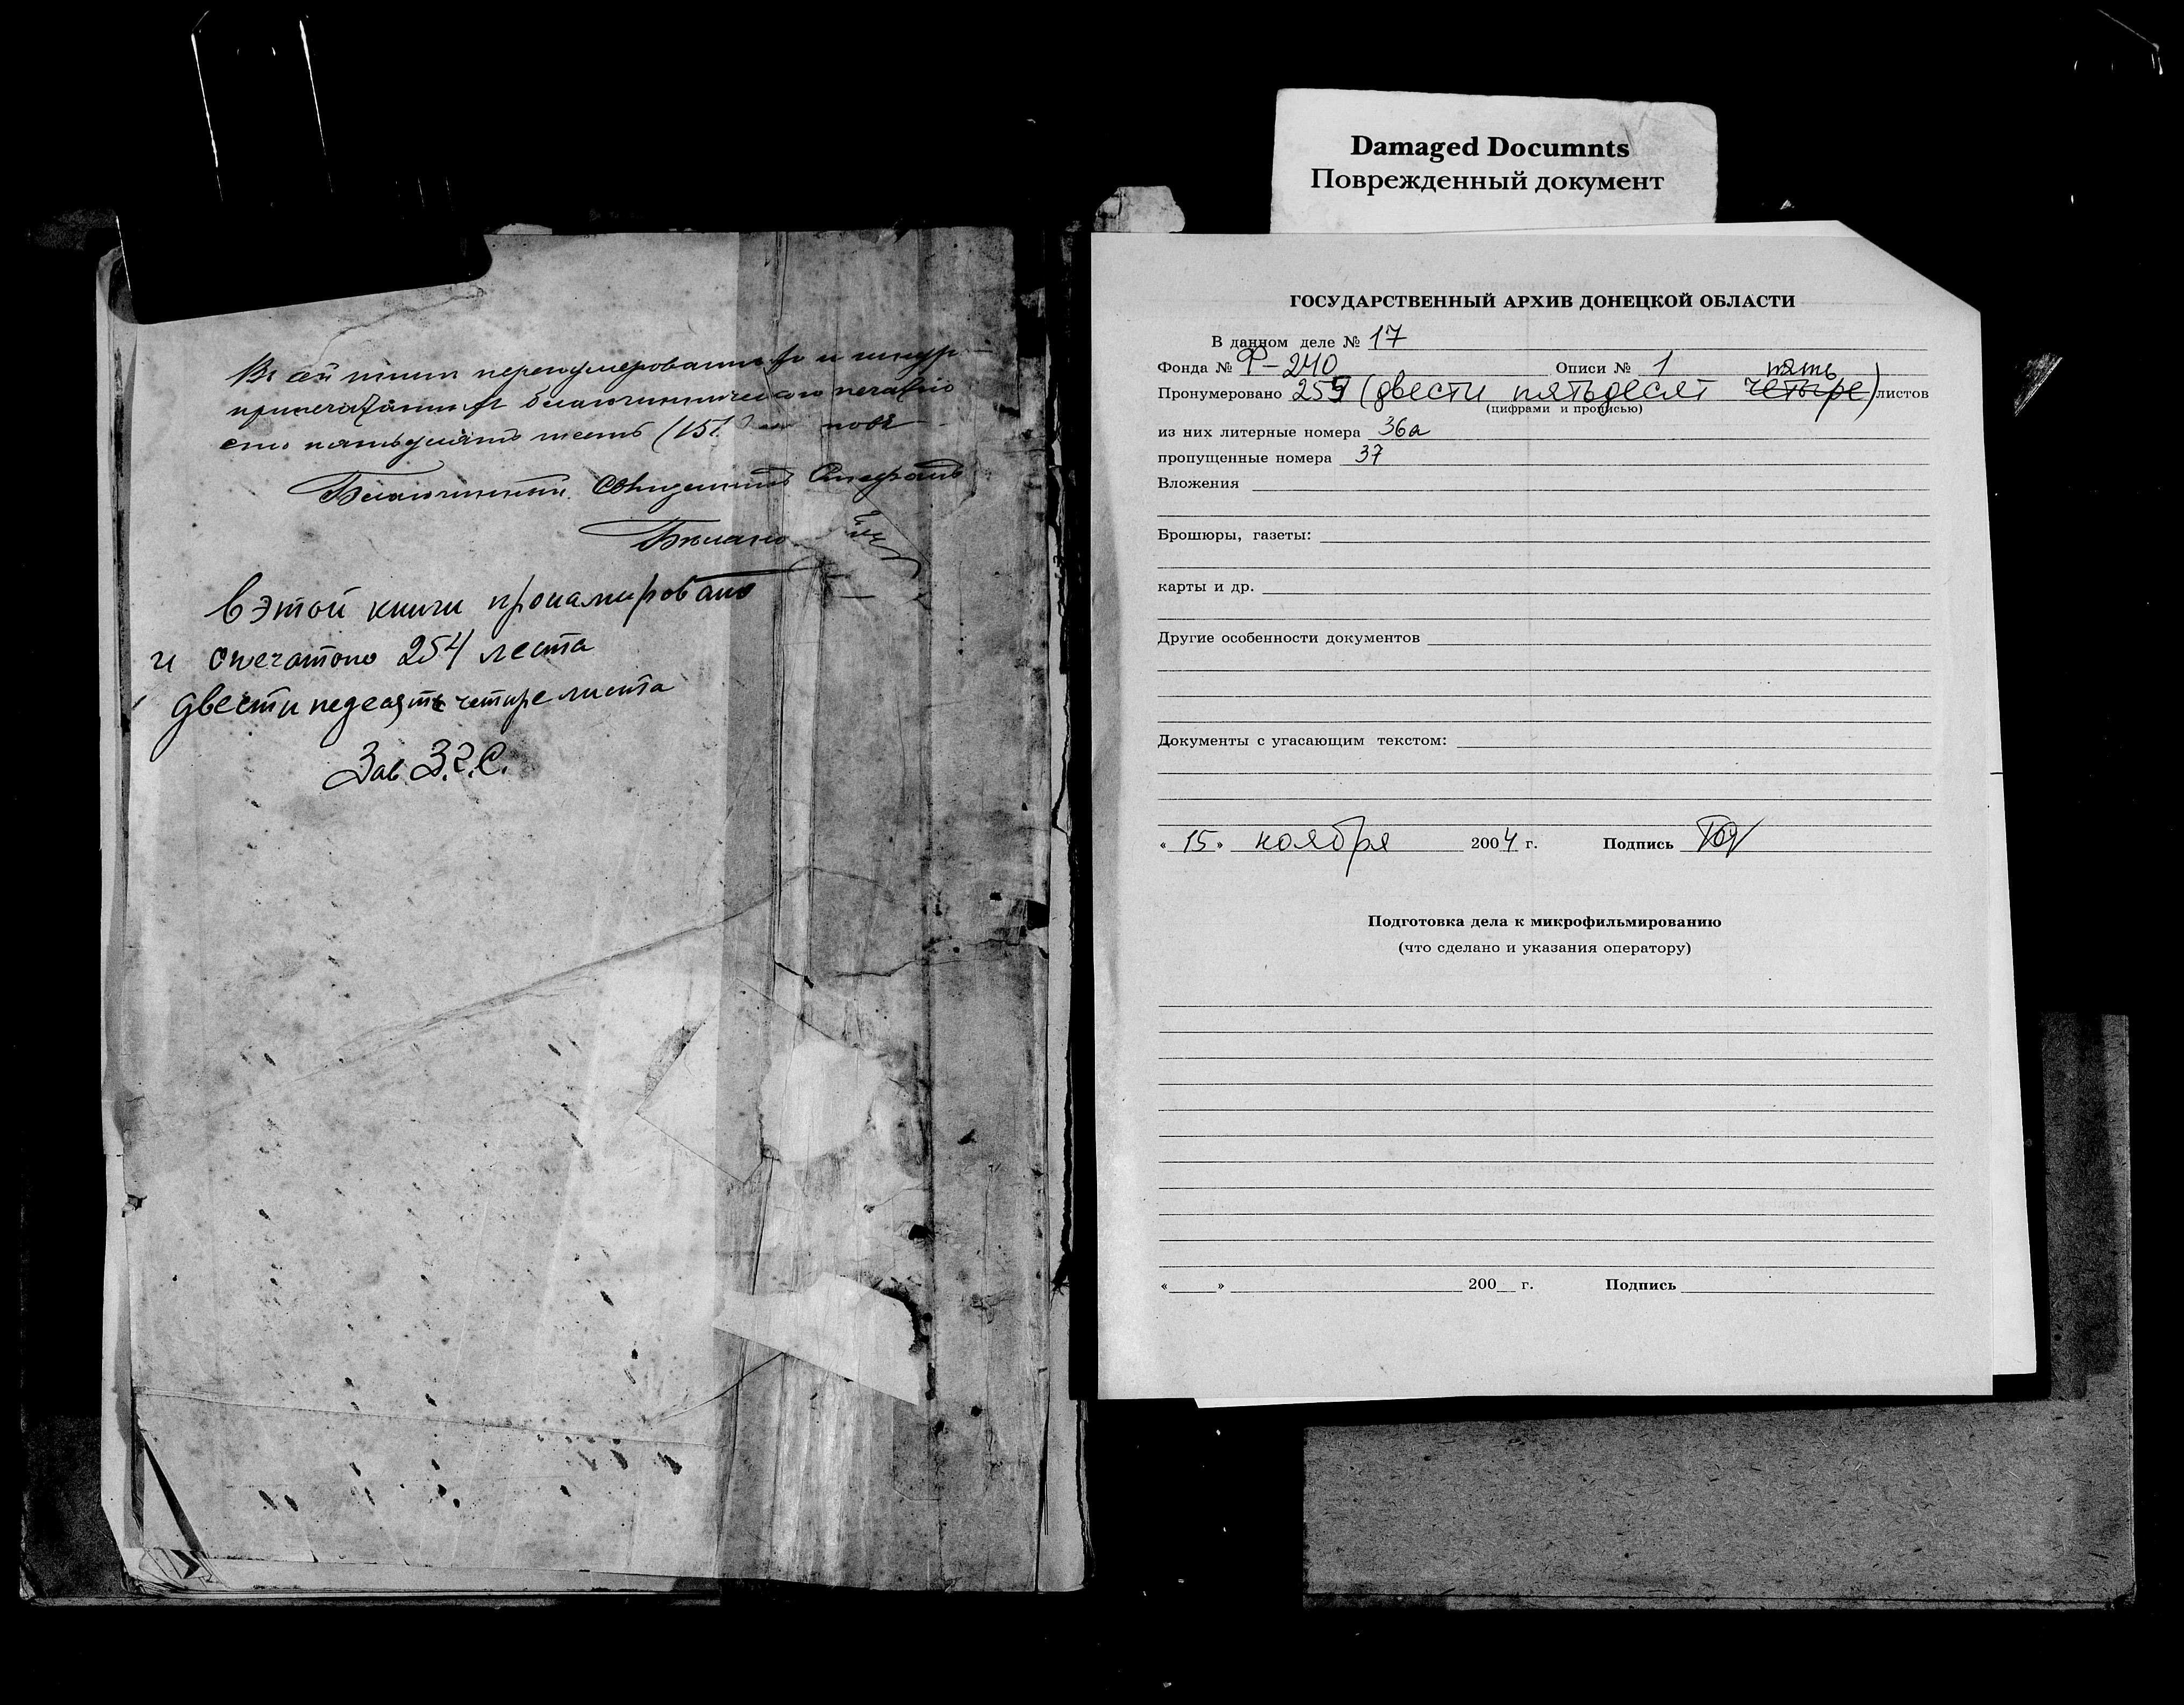 Въ сей книгѣ перенумерованныхъ и шнур-
припечатанныхъ благочинническою печатью
сто пятьдесятъ шесть (15
Благочинный Священникъ
в этой книги пронамировано
и опечатоно 254 леста
двести педесять четире листа
Зав З.Г.С.
Damaged Documnts
Поврежденный документ
ГОСУДАРСТВЕННЫЙ АРХИВ ДОНЕЦКОЙ ОБЛАСТИ
В данном деле № 17
Фонда № Ф-240 Описи № 1
Пронумеровано 255 (двести пятьдесят четыре пять) листов
(цифрами и прописью)
из них литерные номера 36а
пропущенные номера 37
Вложения
Брошюры, газеты:
карты и др.
Другие особенности документов
Документы с угасающим текстом:
«15» ноября 2004 г. Подпись
Подготовка дела к микрофильмированию
(что сделано и указания оператору)
«____» 200__ г. Подпись